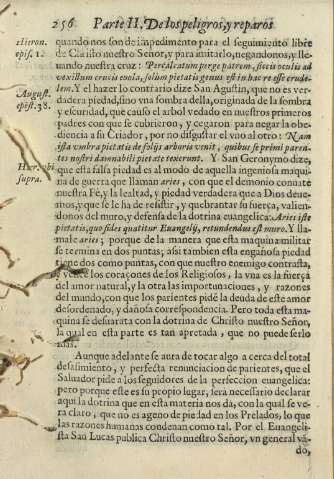 256 Parte II, De los peligros, y reparos
Hieron.
epis. 1.
quando nos son de impedimento para el seguimiento libre
de Christo nuestro Señor, y para imitarlo, negandonos, y lle-
uando nuestra cruz: Per calcatum perge patrem, siccis oculis ad
vexillum crucis euola, solum pietatis genus est in hac re esse crude-
lem. Y el hazer lo contrario dize San Augustin, que no es ver-
August.
epist. 38.
dadera piedad, sino vna sombra della, originada de la sombra
y escuridad, que causò el arbol vedado en nuestros primeros
padres con que se cubrieron, y cegaron para negar la obe-
diencia a su Criador, por no disgustar el vno al otro: Nam
ista vmbra pietatis de folijs arboris venit, quibus se primi paren-
tes nostri damnabili pietate texerunt. Y San Geronymo dize,
Hier. vbi
supra.
que esta falsa piedad es al modo de aquella ingeniosa maqui-
na de guerra que llaman aries, con que el demonio conuate
nuestra Fè, y la lealtad, y piedad verdadera que a Dios deue-
mos, y que se le ha de resistir, y quebrantar su fuerça, valien-
donos del muro, y defensa de la dotrina euangelica: Aries iste
pietatis, quo fides quatitur Euangelij, retundendus est muro. Y lla-
male aries; porque de la manera que esta maquina militar
se termina en dos puntas; assi tambien esta engañosa piedad
tiene dos como puntas, con que nuestro enemigo contrasta,
y vence los coraçones de los Religiosos, la vna es la fuerça
del amor natural, y la otra las importunaciones, y razones
del mundo, con que los parientes pidẽ la deuda de este amor
desordenado, y dañosa correspondencia. Pero toda esta ma-
quina se desarata con la dotrina de Christo nuestro Señor,
la qual en esta parte es tan apretada, que no puede serlo
mas.
Aunque adelante se aura de tocar algo a cerca del total
desasimiento, y perfecta renunciacion de parientes, que el
Saluador pide a los seguidores de la perfeccion euangelica:
pero porque este es su propio lugar, serà necessario declarar
aqui la dotrina que en esta materia nos dà, con la qual se ve-
ra claro, que no es ageno de piedad en los Prelados, lo que
las razones humanas condenan como tal. Por el Euangeli-
sta San Lucas publica Christo nuestro Señor, vn general vã
do,